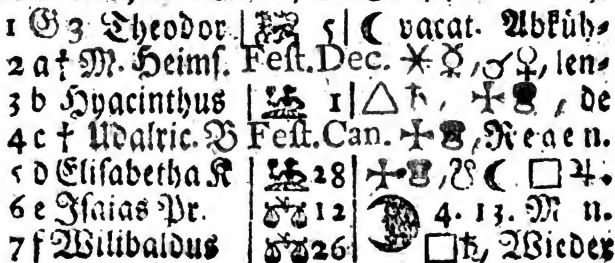 1 G 3 Theodor. ♌ 5 ☾ vacat. Abküh⸗
2 a † M. Heims. Fest. Dec. ⚹ ☿, ☌ ♀, len⸗
3 b Hyacinthus ♌ 1 △ ♄, de
4 c † Udalric. B Fest. Can. Regen.
5 d Elisabetha K 28 ☾ □ ♃.
6 e Isaias Pr. ♎ 12 ☾ 4. 13. M n.
7 f Wilibaldus ♎ 26 □ ♄, Wieder